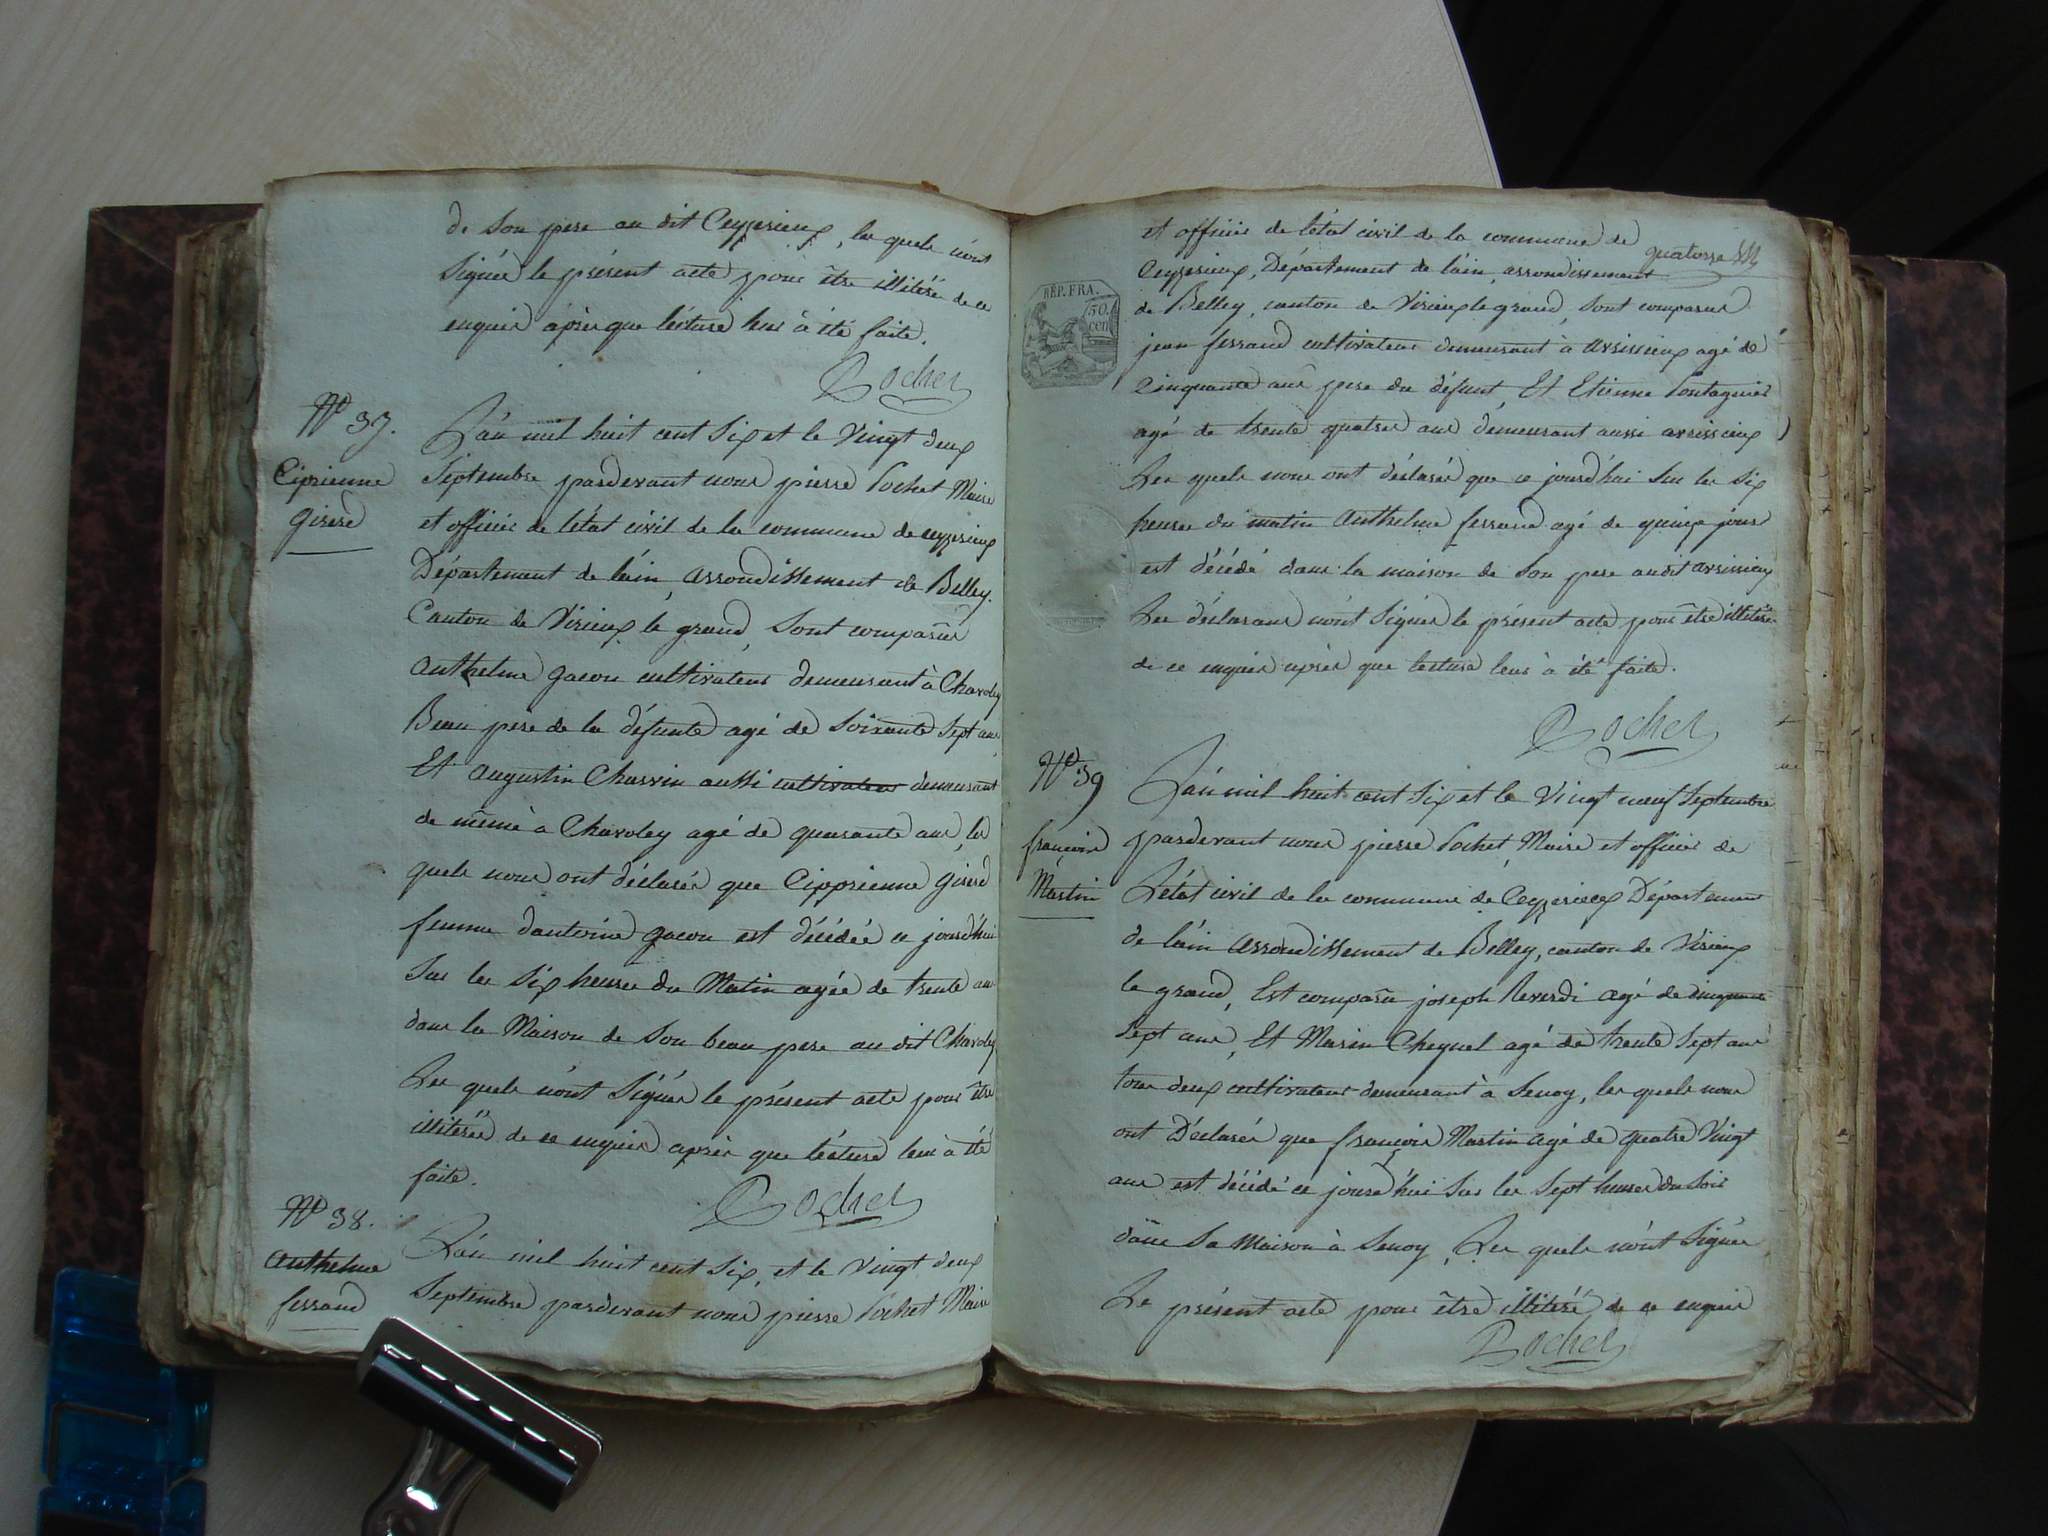 de Son pere au dit Ceyzerieux, les quels n'ont
Signée le présent acte pour être illiteré de ce
enquis après que lécture leur à été faite.
Pochet
N° 37.
Ciprienne
Girerd
L'an mil huit cent Six et le Vingt deux
Septembre pardevant nous pierre Pochet Maire
et officier de létat civil de la commune de ceyzerieux
Département de láin, arrondissement de Belley.
Canton de Virieux le grand, Sont comparus
Anthelme gacon cultivateur demeurant à Chavoley
Beau pere de la défunte agé de Soixante Sept ans
Et augustin Charvin aussi cultivateur demeurant
de même à Chavoley agé de quarante ans, les
quels nous ont déclarés que Cipprienne girerd
femme d'antoine gacon est décédée ce jourd'hui
Sur les Six heures du Matin agée de trente ans
dans la Maison de Son beau pere au dit Chavoley
Les quels n'ont Signés le présent acte pour être
illiterés de ce enquis après que lécture leur à été
faite.
Pochet
N° 38.
Anthelme
ferrand
L'an mil huit cent Six, et le Vingt deux
Septembre pardevant nous pierre Pochet Maire
quatorze
et officier de létat civil de la commune de
Ceyzerieux, Département de láin, arrondissement
de Belley, canton de Virieux le grand, Sont comparus
RÉP. FRA.
50.
cen
jean ferrand cultivateur demeurant à avrissieux agé de
Cinquante ans pere du défunt, Et Etienne Pontagnier
agé de trente quatre ans demeurant aussi avrissieux
Les quels nous ont déclarés que ce jourd'hui Sur les Six
heures du matin Anthelme ferrand agé de quinze jours
est décédé dans la maison de Son pere audit avrissieux
Les déclarans n'ont Signés le présent acte pour être illiterés
de ce enquis après que lecture leur à été faite.
Pochet
N° 39
françois
Martin
L'an mil huit cent Six et le Vingt neuf Septembre
pardevant nous pierre Pochet, Maire et officier de
L'état civil de la commune de Ceyzerieux Département
de láin arrondissement de Belley, canton de Virieux
le grand, Est comparu joseph Reverdi agé de cinquante
Sept ans, Et Marin Cheynel agé de trente Sept ans
tous deux cultivateurs demeurant à Senoy, les quels nous
ont Déclarés que françois Martin agé de quatre Vingt
ans est décédé ce jourd'hui Sur les Sept heures du Soir
dans Sa Maison à Senoy, Les quels n'ont Signés
Le présent acte pour être illiteré de ce enquis
Pochet